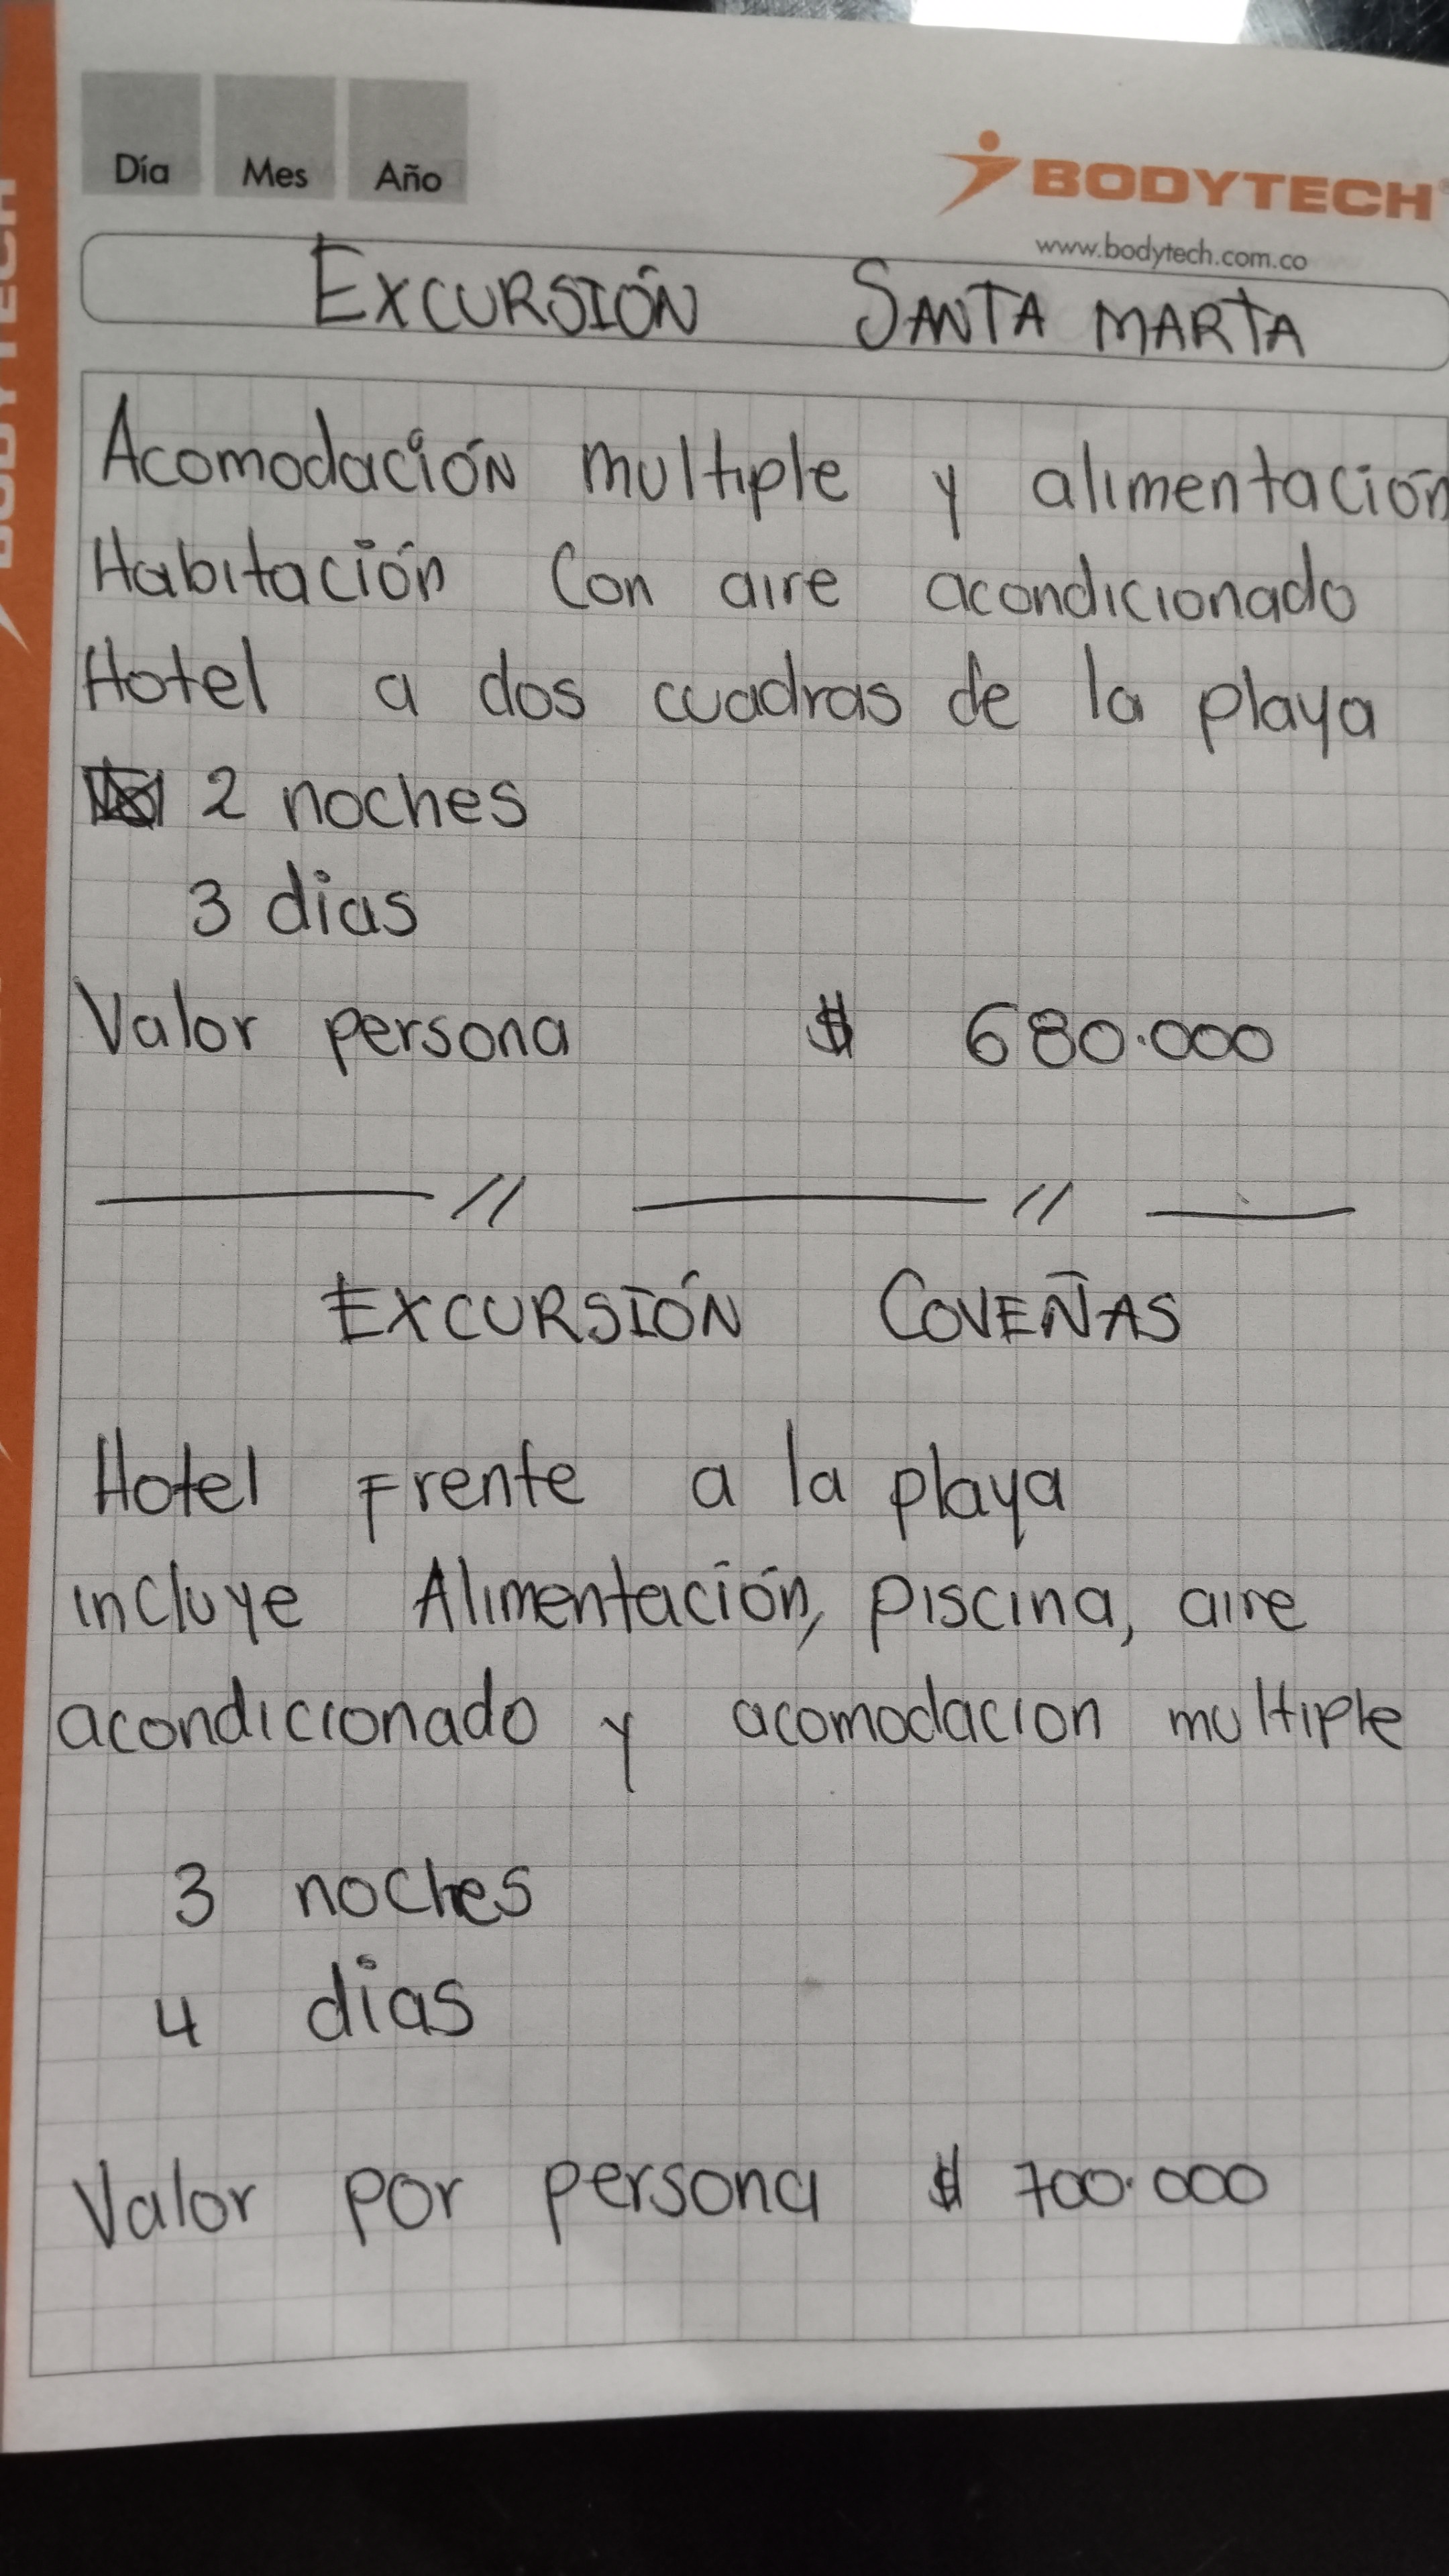 Día Mes Año
BODYTECH
www.bodytech.com.co
EXCURSIÓN SANTA MARTA
Acomodación multiple y alimentación
Habitación Con aire acondicionado
Hotel a dos cuadras de la playa
2 noches
3 dias
Valor persona $ 680.000
// //
EXCURSIÓN COVEÑAS
Hotel Frente a la playa
incluye Alimentación, piscina, aire
acondicionado y acomodacion multiple
3 noches
4 dias
Valor por persona $ 700.000
BODYTECH